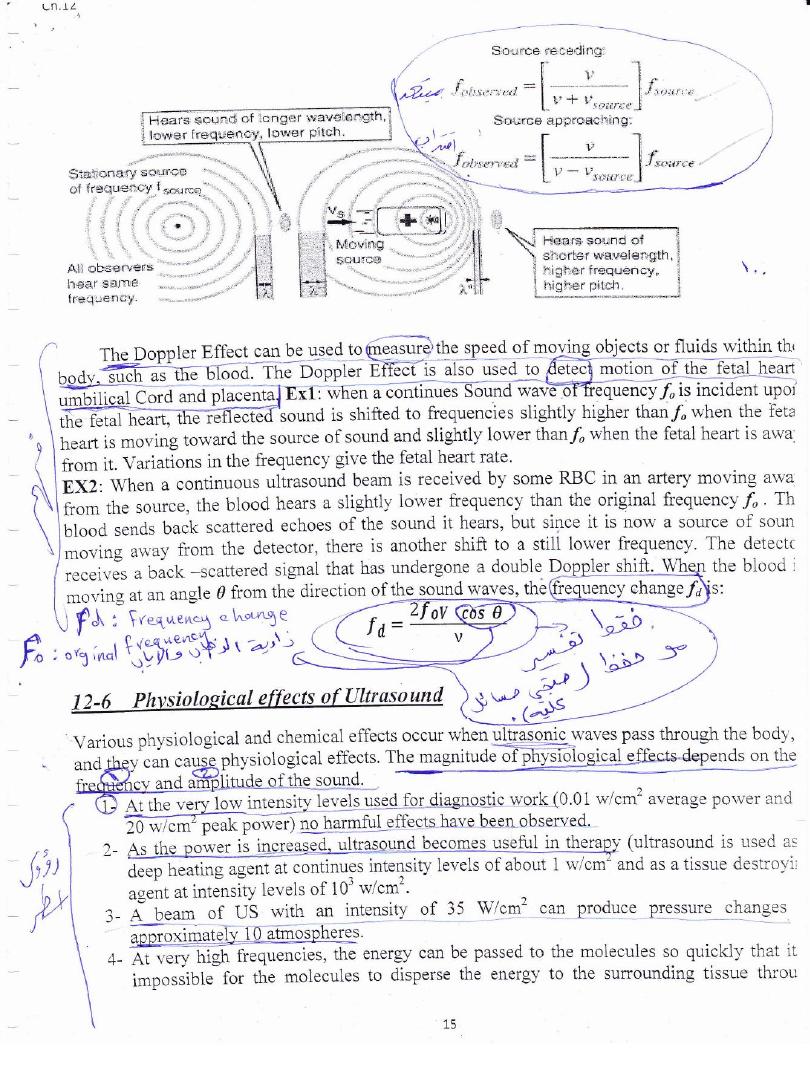 Ch.12
Source receding:
f observed = [ v / v + v source ] f source
Source approaching:
f observed = [ v / v − v source ] f source
Hears sound of longer wavelength,
lower frequency, lower pitch.
Stationary source
of frequency f source
All observers
hear same
frequency.
Vs
Moving
source
λ
λ'
λ"
Hears sound of
shorter wavelength,
higher frequency,
higher pitch.
The Doppler Effect can be used to measure the speed of moving objects or fluids within the
body, such as the blood. The Doppler Effect is also used to detect motion of the fetal heart
umbilical Cord and placenta. Ex1: when a continues Sound wave of frequency fo is incident upo
the fetal heart, the reflected sound is shifted to frequencies slightly higher than fo when the feta
heart is moving toward the source of sound and slightly lower than fo when the fetal heart is awa
from it. Variations in the frequency give the fetal heart rate.
EX2: When a continuous ultrasound beam is received by some RBC in an artery moving awa
from the source, the blood hears a slightly lower frequency than the original frequency fo . Th
blood sends back scattered echoes of the sound it hears, but since it is now a source of soun
moving away from the detector, there is another shift to a still lower frequency. The detecto
receives a back –scattered signal that has undergone a double Doppler shift. When the blood i
moving at an angle θ from the direction of the sound waves, the frequency change fd is:
Fd : Frequency change
fd = 2foV cos θ / v
Fo : orginal frequency
زاوية
فقط تفسير
مو حفظ
12-6 Physiological effects of Ultrasound
Various physiological and chemical effects occur when ultrasonic waves pass through the body,
and they can cause physiological effects. The magnitude of physiological effects depends on the
frequency and amplitude of the sound.
1- At the very low intensity levels used for diagnostic work (0.01 w/cm² average power and
20 w/cm² peak power) no harmful effects have been observed.
2- As the power is increased, ultrasound becomes useful in therapy (ultrasound is used as
deep heating agent at continues intensity levels of about 1 w/cm² and as a tissue destroyi
agent at intensity levels of 10³ w/cm².
3- A beam of US with an intensity of 35 W/cm² can produce pressure changes
approximately 10 atmospheres.
4- At very high frequencies, the energy can be passed to the molecules so quickly that it
impossible for the molecules to disperse the energy to the surrounding tissue throu
15